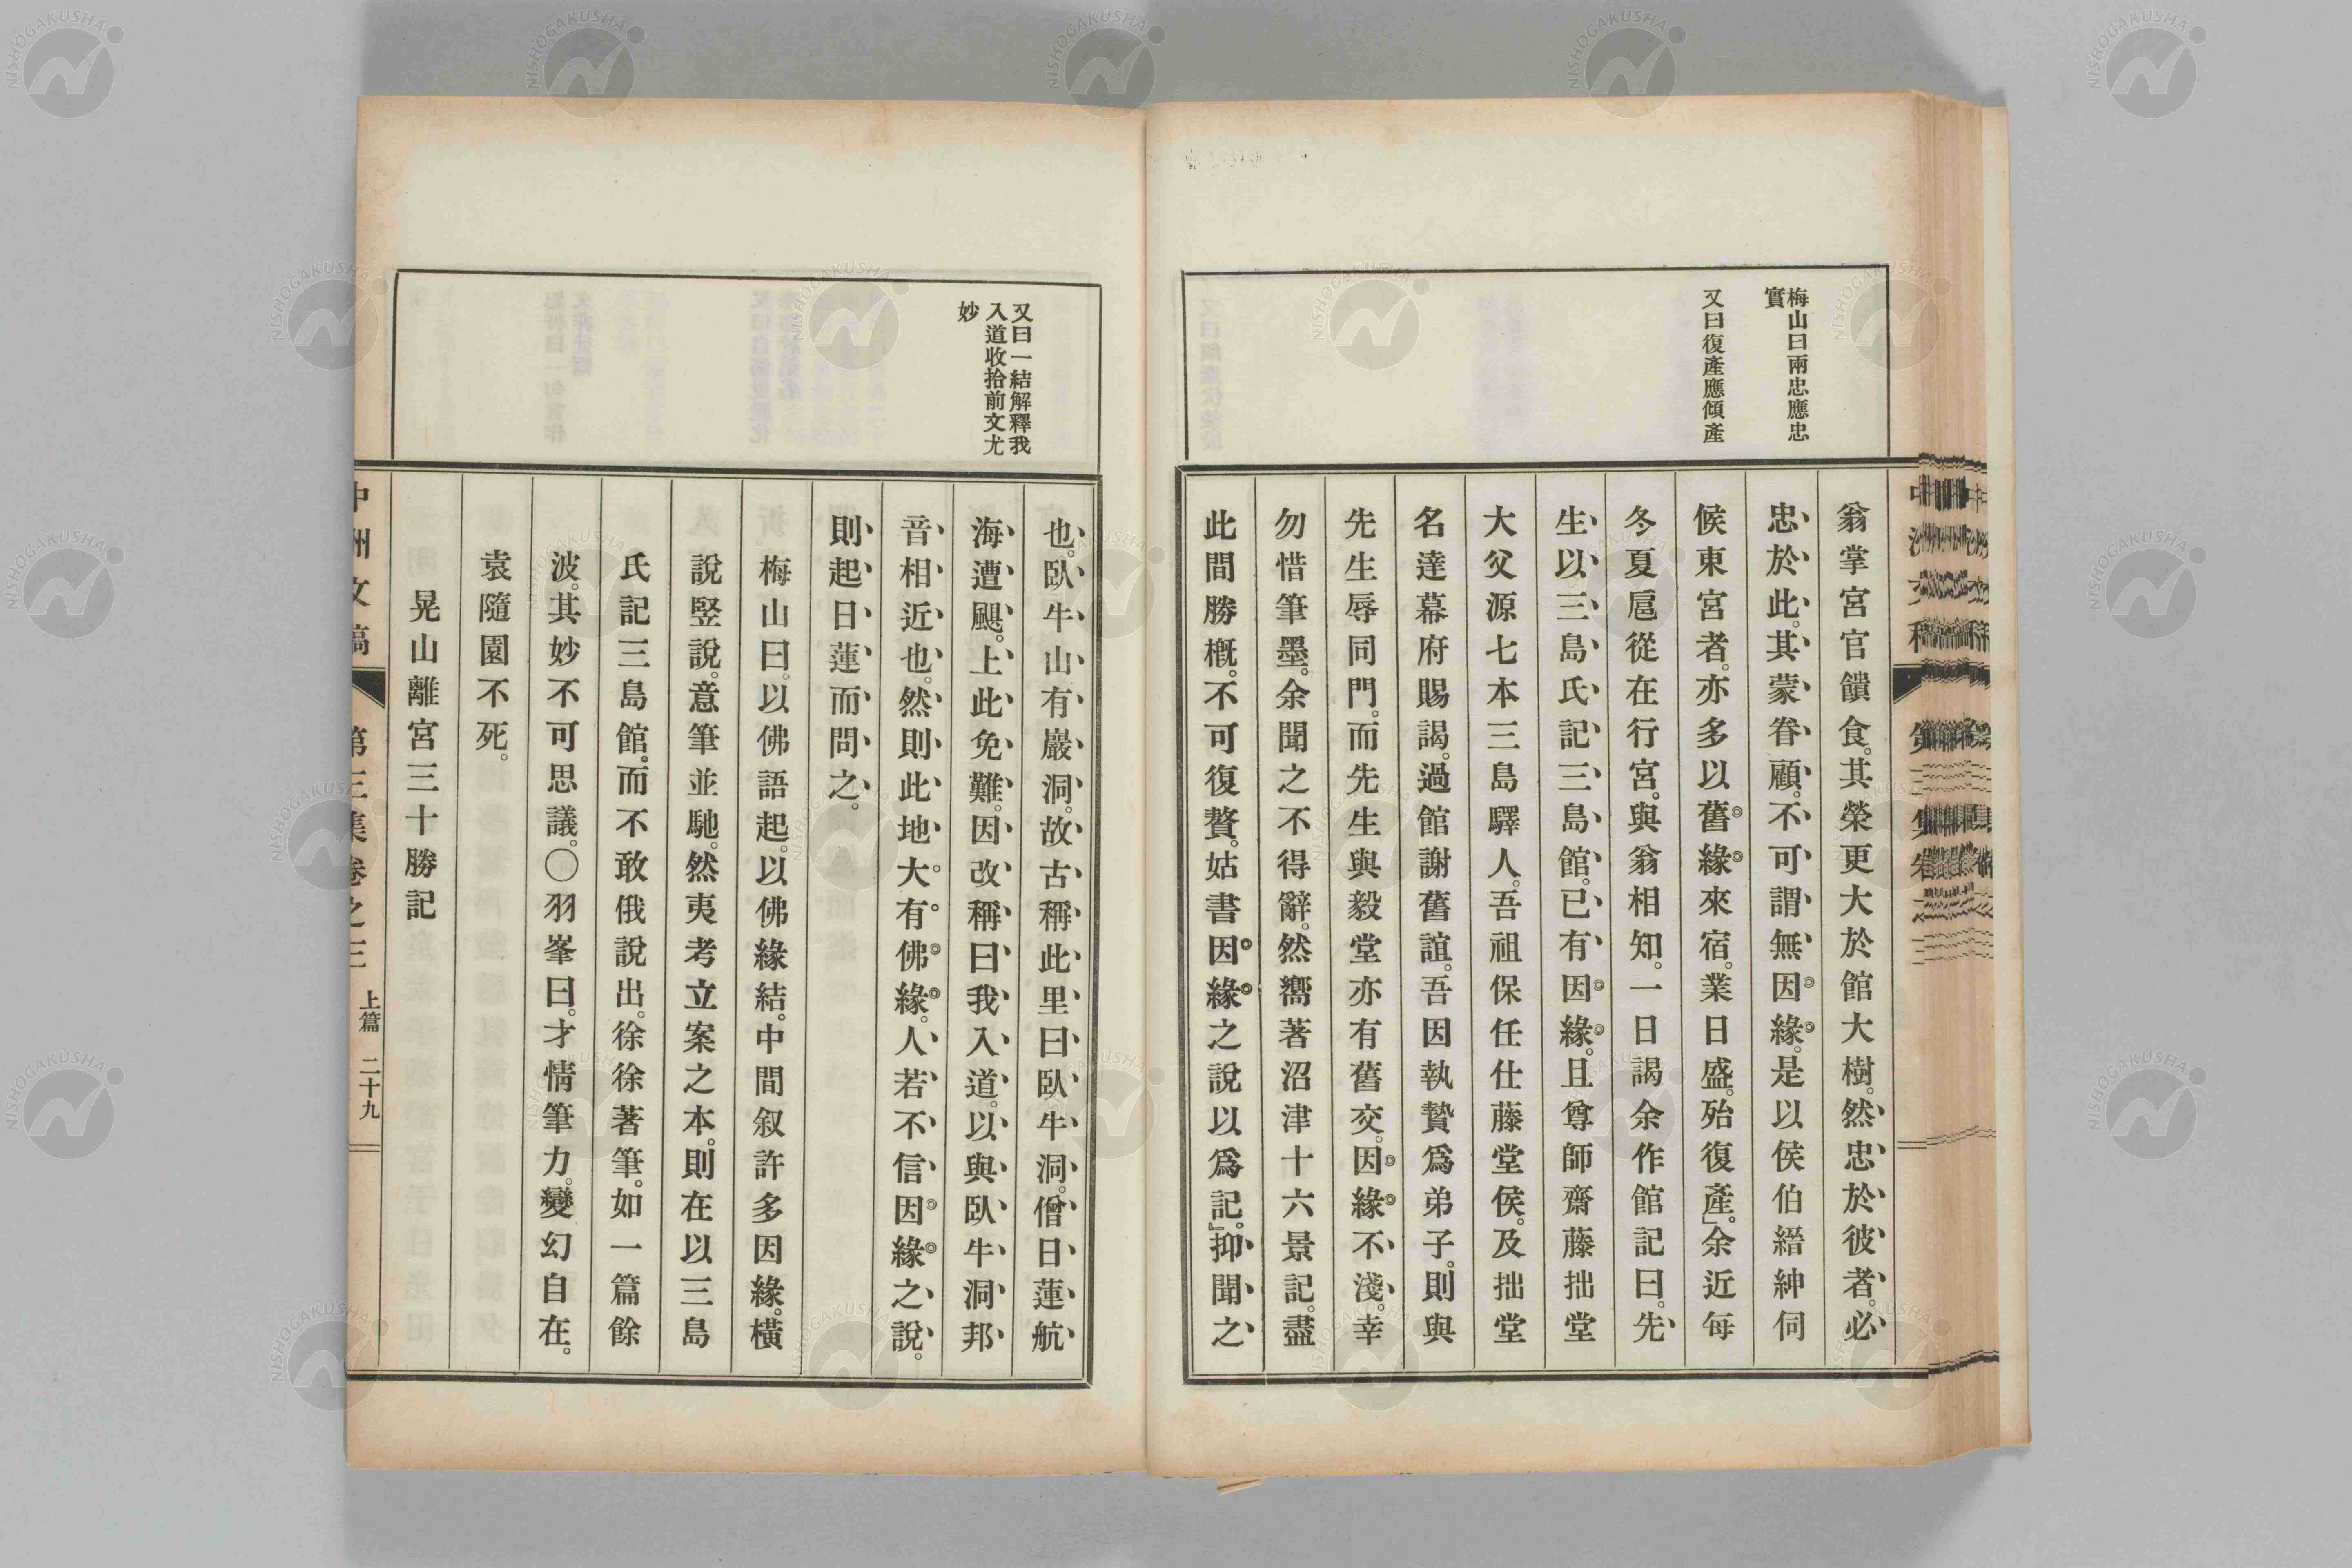 梅山曰兩忠應忠
實
又曰復產應傾產
翁掌宮官饋食。其榮更大於館大樹。然忠於彼者。必
忠於此。其蒙眷顧。不可謂無因緣。是以侯伯縉紳伺
候東宮者。亦多以舊緣來宿。業日盛。殆復產。」余近每
冬夏扈從在行宮。與翁相知。一日謁余作館記曰。先
生以三島氏記三島館。已有因緣。且尊師齋藤拙堂
大父源七本三島驛人。吾祖保任仕藤堂侯。及拙堂
名達幕府賜謁。過館謝舊誼。吾因執贄爲弟子。則與
先生辱同門。而先生與毅堂亦有舊交。因緣不淺。幸
勿惜筆墨。余聞之不得辭。然嚮著沼津十六景記。盡
此間勝概。不可復贅。姑書因緣之說以爲記。」抑聞之
又曰一結解釋我
入道收拾前文尤
妙
也。臥牛山有巖洞。故古稱此里曰臥牛洞。僧日蓮航
海遭颶。上此免難。因改稱曰我入道。以與臥牛洞邦
音相近也。然則此地大有佛緣。人若不信因緣之說。
則起日蓮而問之。
梅山曰。以佛語起。以佛緣結。中間叙許多因緣。橫
說竪說。意筆並馳。然夷考立案之本。則在以三島
氏記三島館。而不敢俄說出。徐徐著筆。如一篇餘
波。其妙不可思議。〇羽峯曰。才情筆力。變幻自在。
袁隨園不死。
晃山離宮三十勝記
中洲文稿 第三集卷之三 上篇 二十九